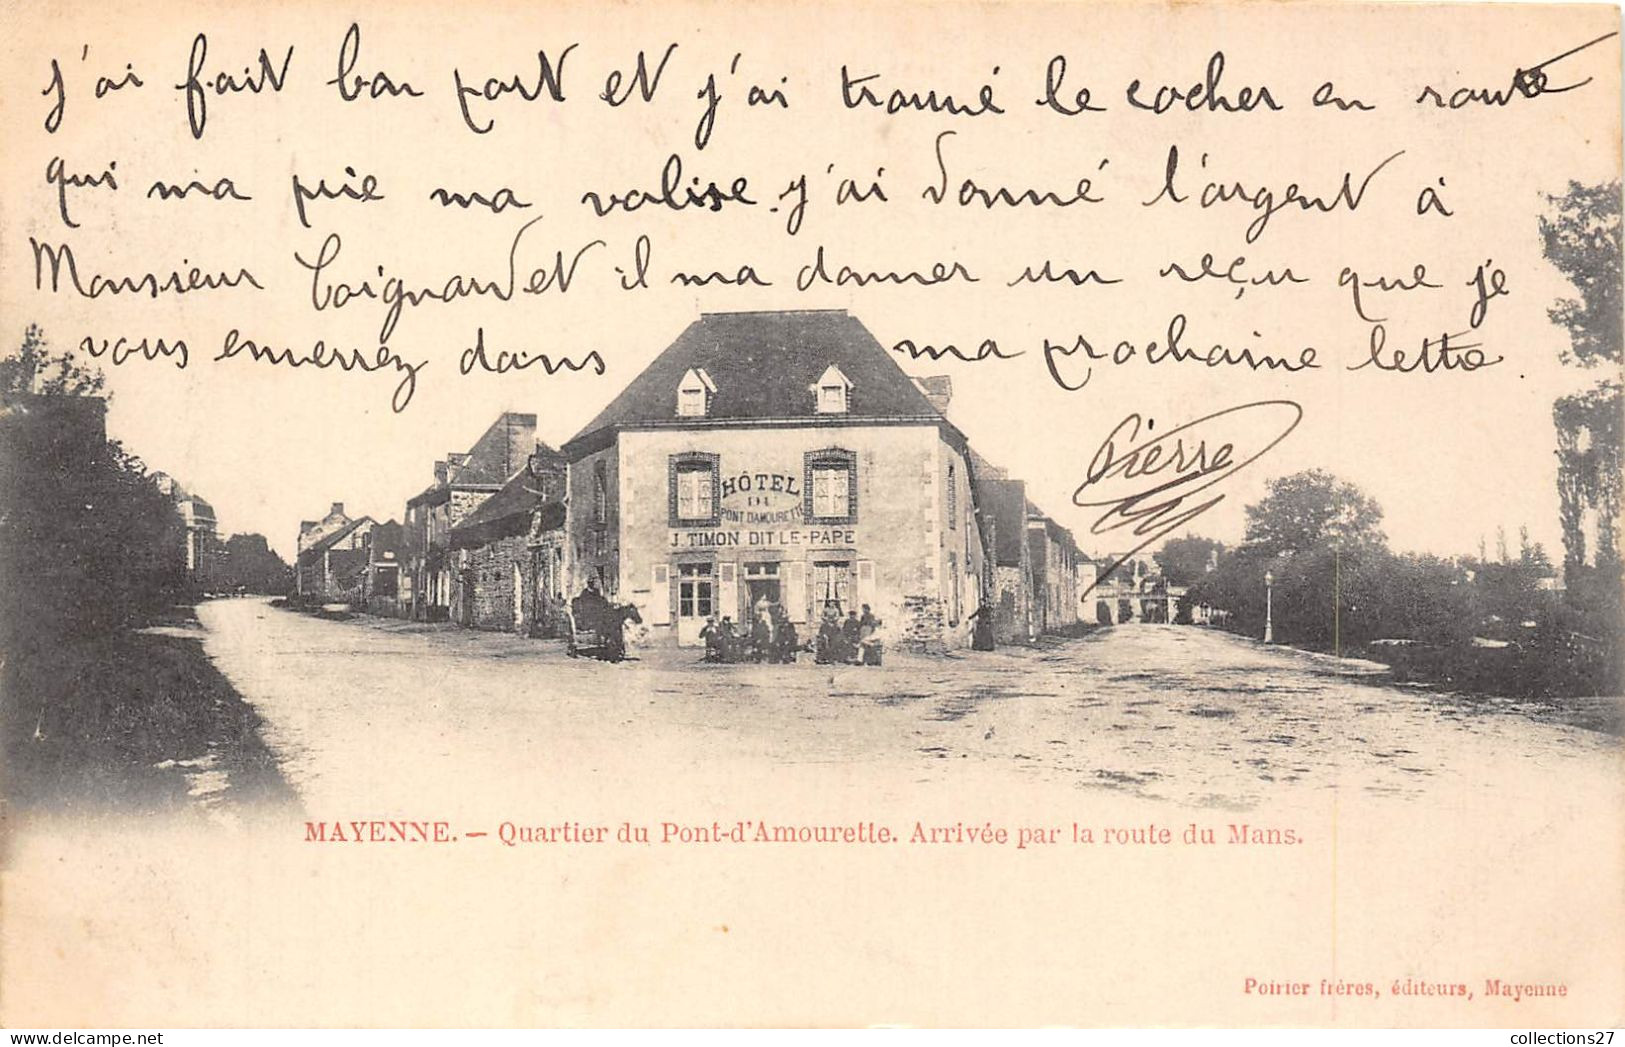 j'ai fait bon port et j'ai trouvé le cocher en route
qui ma prie ma valise. j'ai donné l'argent à
Monsieur Coignard et il ma donner un reçu que je
vous enverrez dans ma prochaine lettre.
Pierre
HÔTEL
DU
PONT D'AMOURETTE
J. TIMON DIT LE-PAPE
MAYENNE. — Quartier du Pont-d'Amourette. Arrivée par la route du Mans.
Poirier frères, éditeurs, Mayenne
collections27